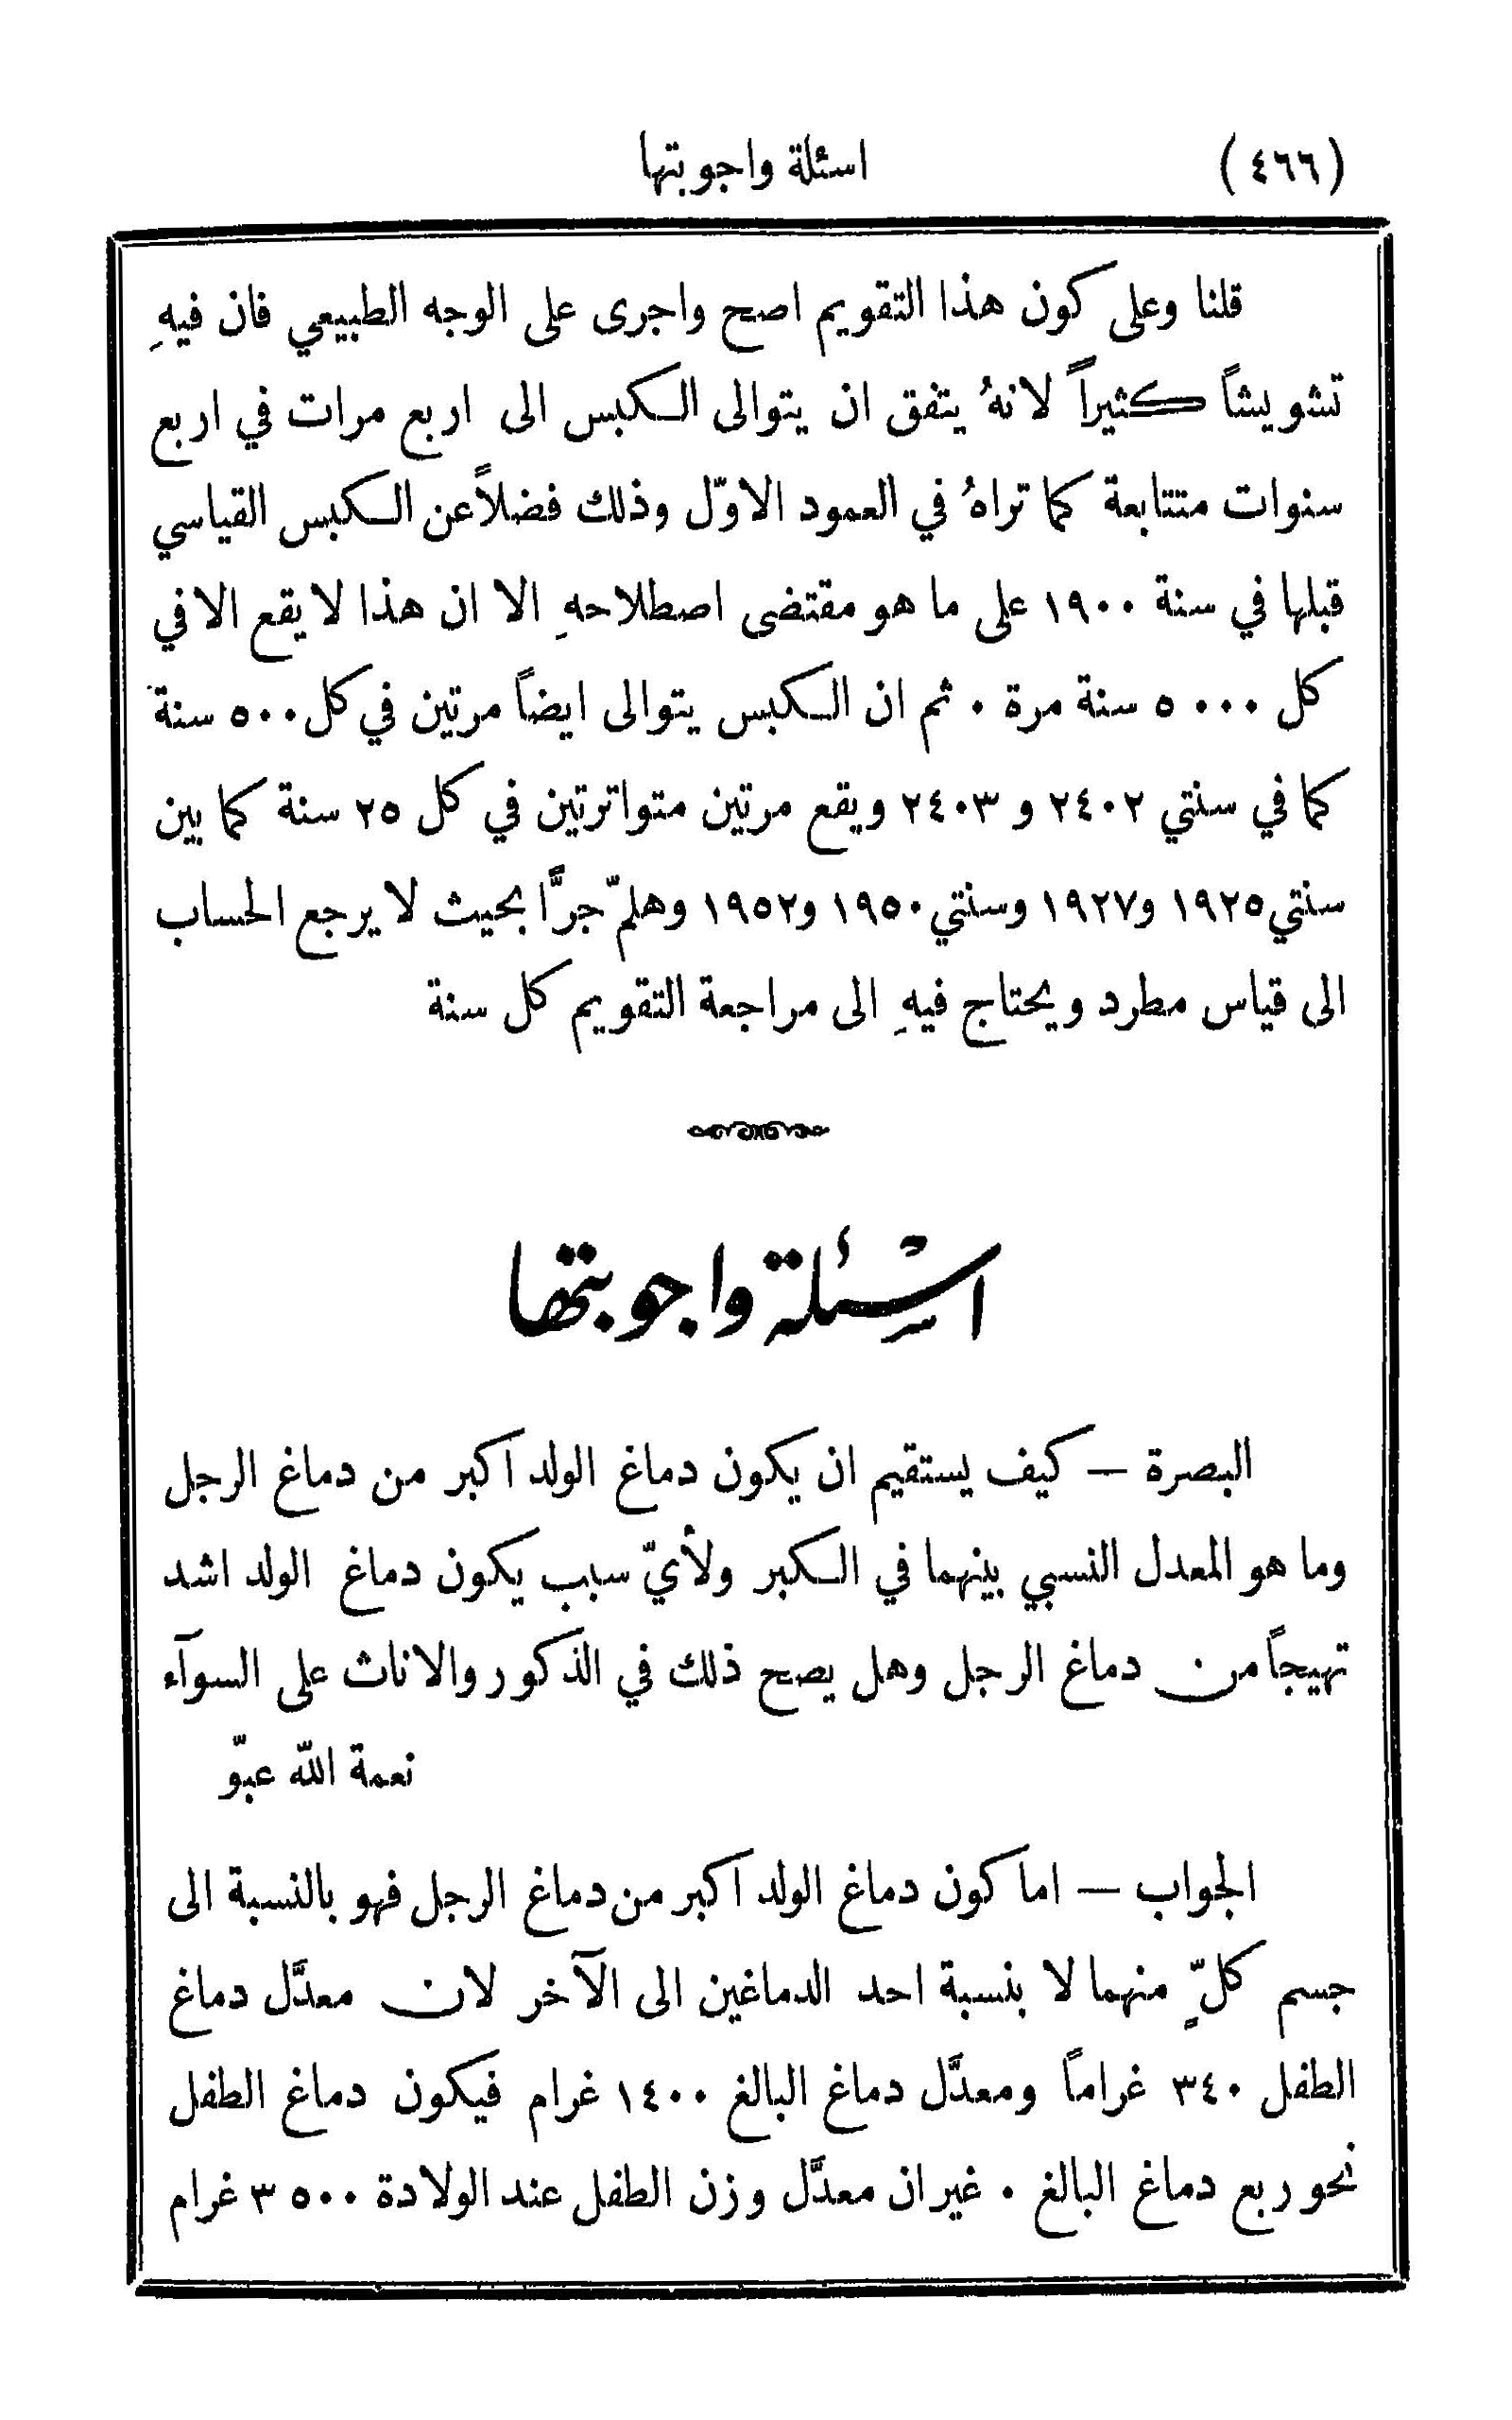 (٤٦٦) اسئلة واجوبتها
قلنا وعلى كون هذا التقويم اصح واجرى على الوجه الطبيعي فان فيهِ
تشويشاً كثيراً لانهُ يتفق ان يتوالى الكبس الى اربع مرات في اربع
سنوات متتابعة كما تراهُ في العمود الاوّل وذلك فضلاً عن الكبس القياسي
قبلها في سنة ١٩٠٠ على ما هو مقتضى اصطلاحهِ الا ان هذا لا يقع الا في
كل ٥٠٠٠ سنة مرة ٠ ثم ان الكبس يتوالى ايضاً مرتين في كل ٥٠٠ سنة
كما في سنتي ٢٤٠٢ و ٢٤٠٣ ويقع مرتين متواترتين في كل ٢٥ سنة كما بين
سنتي ١٩٢٥ و١٩٢٧ وسنتي ١٩٥٠ و١٩٥٢ وهلمّ جرًّا بحيث لا يرجع الحساب
الى قياس مطرد ويحتاج فيهِ الى مراجعة التقويم كل سنة
اسئلة واجوبتها
البصرة — كيف يستقيم ان يكون دماغ الولد اكبر من دماغ الرجل
وما هو المعدل النسبي بينهما في الكبر ولأيّ سبب يكون دماغ الولد اشد
تهيجاً من دماغ الرجل وهل يصح ذلك في الذكور والاناث على السوآء
نعمة الله عبّو
الجواب — اما كون دماغ الولد اكبر من دماغ الرجل فهو بالنسبة الى
جسم كلٍّ منهما لا بنسبة احد الدماغين الى الآخر لان معدَّل دماغ
الطفل ٣٤٠ غراماً ومعدَّل دماغ البالغ ١٤٠٠ غرام فيكون دماغ الطفل
نحو ربع دماغ البالغ ٠ غير ان معدَّل وزن الطفل عند الولادة ٣٥٠٠ غرام